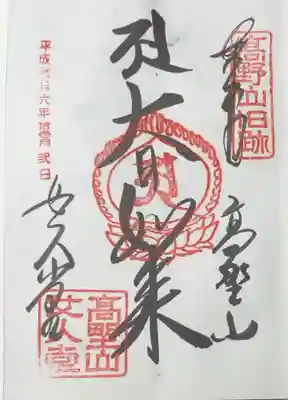 奉拝
髙野山旧跡
高野山
大日如来
女人堂
髙野山
女人堂
平成弐拾六年
弐日